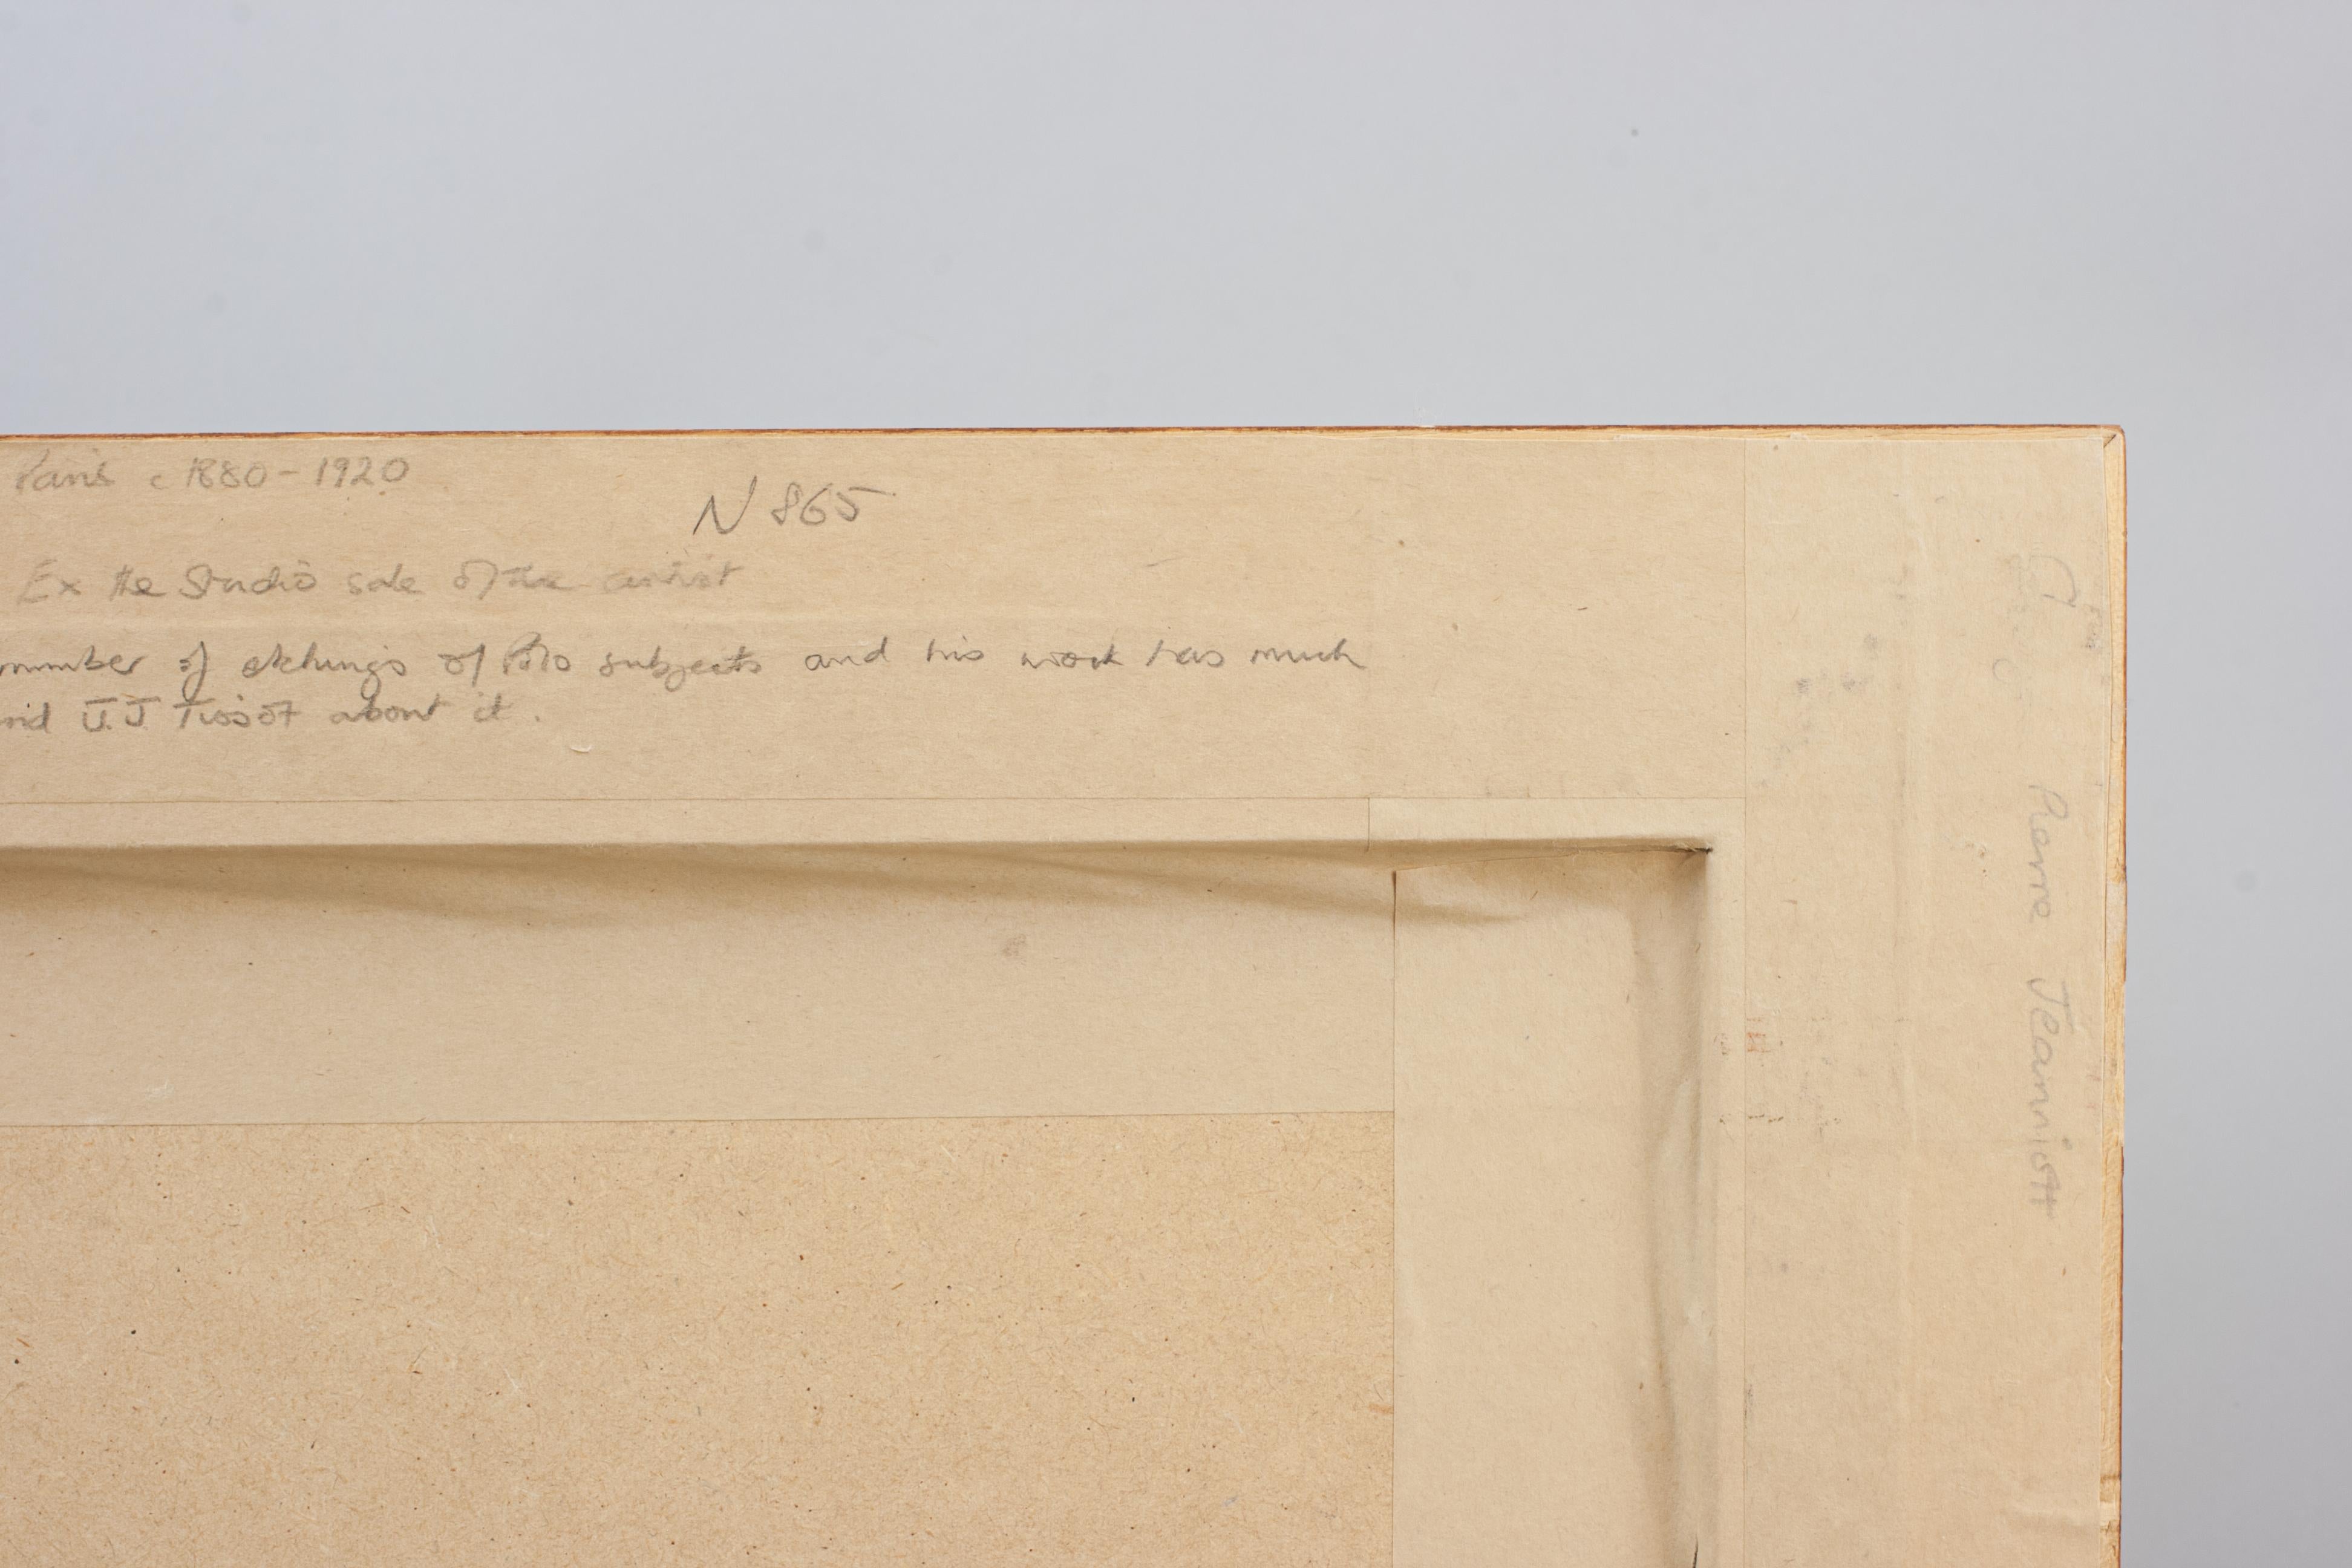 Paris c 1880 - 1920
N 865
Ex the Studio sale of the artist
number of etchings of Polo subjects and his work has much
and J.J Tissot about it.
Pierre Jeanniott